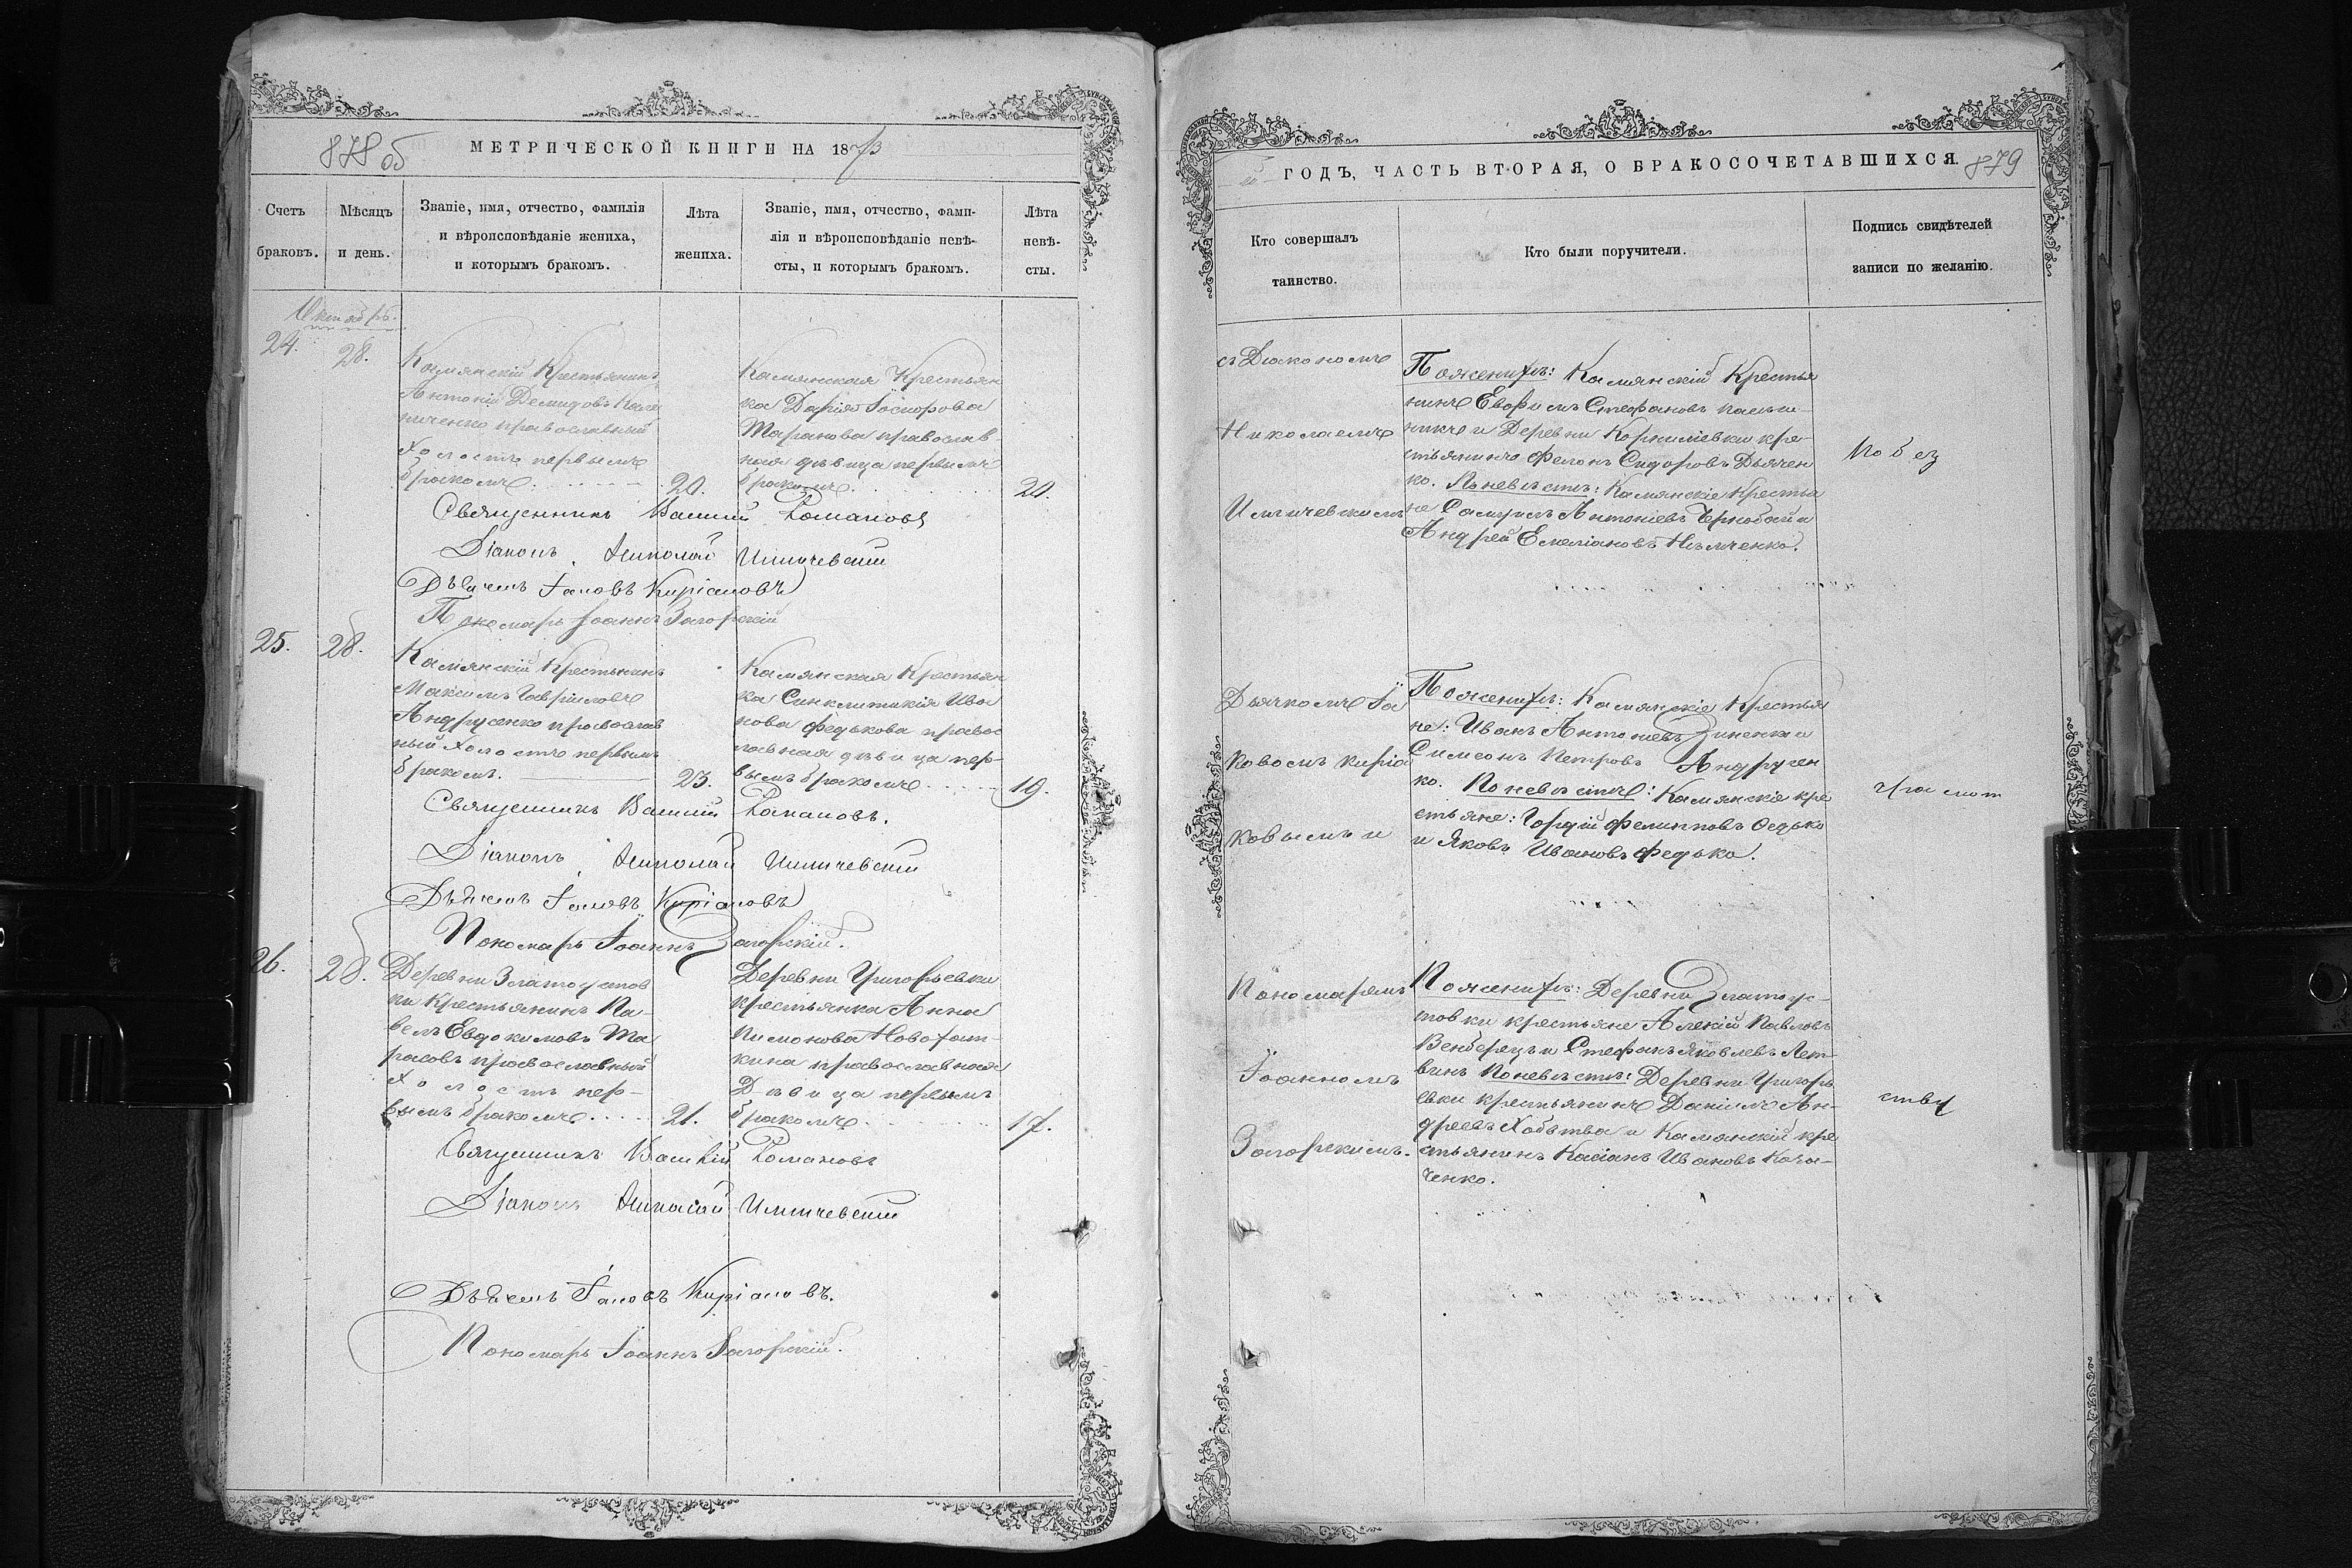 878 об
МЕТРИЧЕСКОЙ КНИГИ НА 1873
Счетъ
браковъ.
Мѣсяцъ
и день.
Званіе, имя, отчество, фамилія
и вѣроисповѣданіе жениха,
и которымъ бракомъ.
Лѣта
жениха.
Званіе, имя, отчество, фами-
лія и вѣроисповѣданіе невѣ-
сты, и которымъ бракомъ.
Лѣта
невѣ-
сты.
Октябрь.
24.
28.
Камянскій Крестьянинъ
Антоній Демидовъ
православный
Холостъ первымъ
бракомъ.
20.
Камянская Крестьян
ка Дарія
Таранова православ
ная дѣвица первымъ
бракомъ.
20.
Священникъ Василій Романовъ
Діаконъ Николай Илличевскій
Дьячекъ Іаковъ Киріаковъ
Пономарь Іоаннъ Загорскій
25.
28.
Камянскій Крестьянинъ
Максимъ Гавріиловъ
Андрусенко православ
ный Холостъ первымъ
бракомъ.
23.
Камянская Крестьян
ка Синклитикія Ива
нова Федькова правос
лавная дѣвица пер-
вымъ бракомъ
19.
Священникъ Василій Романовъ.
Діаконъ Николай Илличевскій
Дьячекъ Іаковъ Киріаковъ
Пономарь Іоаннъ Загорскій.
26.
28.
Деревни Златоустов
ки Крестьянинъ Па-
велъ Евдокимовъ Та
расовъ православный
Холостъ пер-
вымъ бракомъ
21.
Деревни Григорьевки
крестьянка Анна
Пимонова
православная
Дѣвица первымъ
бракомъ
17.
Священникъ Василій Романовъ
Діаконъ Николай Илличевскій
Дьячекъ Іаковъ Киріаковъ.
Пономарь Іоаннъ Загорскій.
й ГОДЪ, ЧАСТЬ ВТОРАЯ, О БРАКОСОЧЕТАВШИХСЯ. 879
Кто совершалъ
таинство.
Кто были поручители.
Подпись свидѣтелей
записи по желанію.
съ Діакономъ
Николаемъ
Илличевскимъ
По женихѣ: Камянскій Крестья
нинъ Евфимъ Стефановъ
и Деревни Корнилевки кре-
стьянинъ Сидоровъ Дьячен
ко. По невѣстѣ: Камянскіе Крестья
не Самуилъ Антоніевъ Чернобай и
Андрей Емеліановъ Нѣмченко.
По без
Дьячкомъ Іа
ковомъ Киріа
ковымъ и
По женихѣ: Камянскіе Крестья
не: Иванъ Антоніевъ Зиненко и
Симеонъ Петровъ Андрусен
ко. По невѣстѣ: Камянскіе кре
стьяне: Гордій Филипповъ Федько
и Яковъ Ивановъ Федько.
грамот
Пономаремъ
Іоанномъ
Загорскимъ.
По женихѣ: Деревни Златоус-
товки крестьяне Алексій Павловъ
и Стефанъ Яковлевъ Лит-
винъ По невѣстѣ: Деревни Григорь
евки крестьянинъ Даніилъ Ан-
дреевъ и Камянскій кре
стьянинъ Касіанъ Ивановъ
ченко.
ству